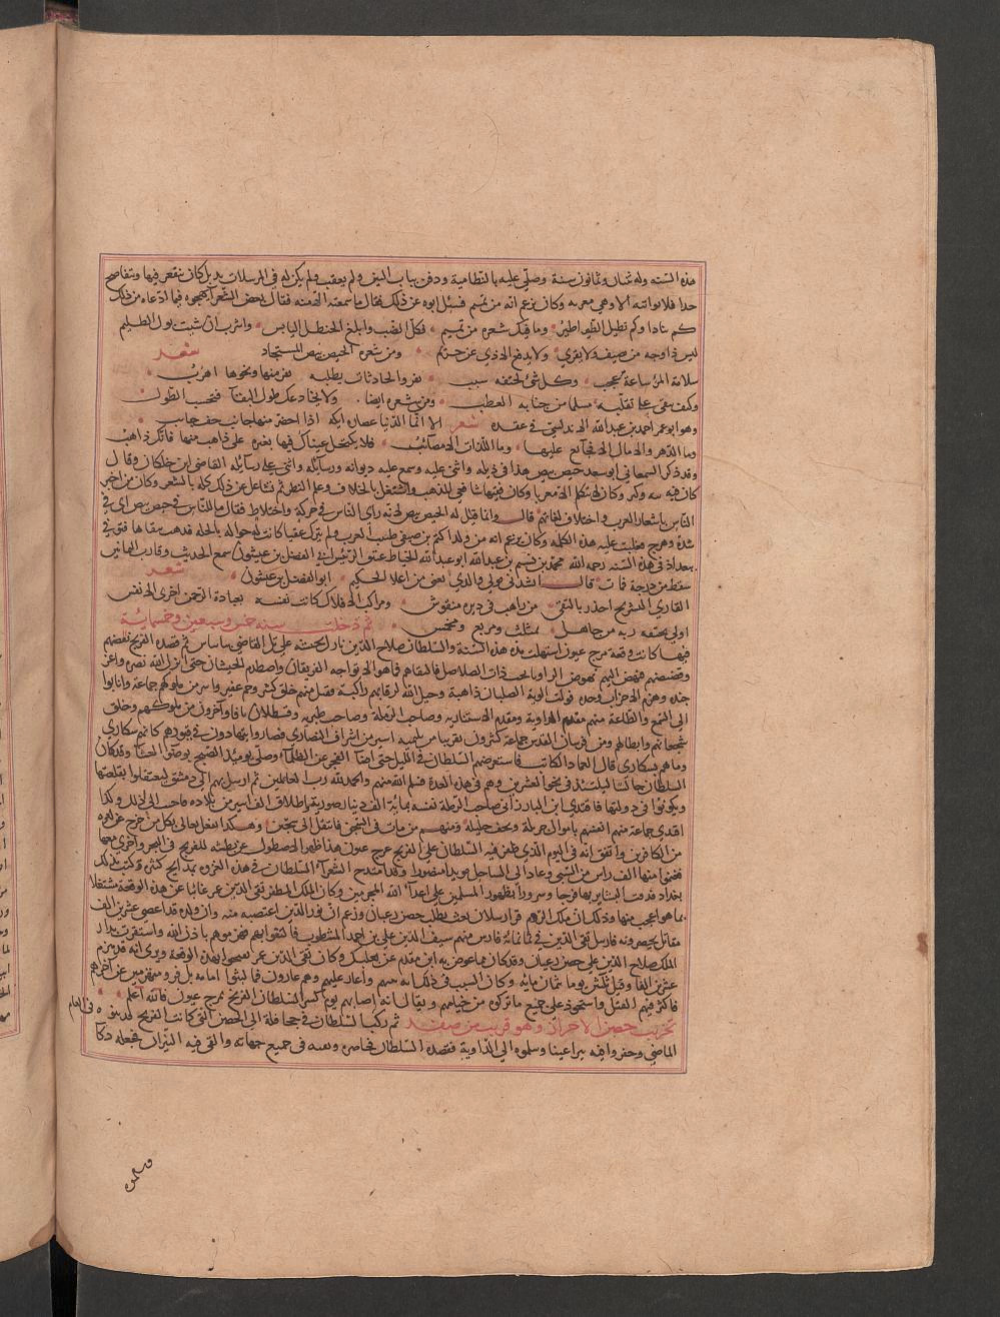 هذه السنه وله ثمان وثمانون سنة وصلّي عليه بالنظامية ودفن بباب التبن ولم يعقب ولم يكن له في المرسلات بديل كان يتقعر فيها ويتفاصح
جدا فلا تواتيه الا وهي معربه وكان يزعم انه من تميم فسئل ابوه عن ذلك فقال ما سمعته الا منه فقال بعض الشعراء يهجوه فيما ادعاه من ذلك
كم تنادا وكم تطيل الطيراطير وما فيك شعره من تميم فكل الضب وابلع الحنظل اليابس واشرب ان شئت بول الظليم
ليس ذا وجه من يضيف ولا يقري ولا يدفع الاذي عن حريم ومن شعره الحيص بيص المستجاد شعر
سلامة المرء ساعة عجب وكل شئ لحتفه سبب يفر والحادثات تطلبه يفر منها ونحوها الهرب
وكيف يبقى على تقلبه مسلما من حياته العطب ومن شعره ايضا ولا يخادعك طول البقا فتحسب الطول
وهو ابو عمر احمد بن عبد الله الاندلسي في عقده شعر الا انما الدنيا غضارة ايكة اذا اخضر منها جانب جف جانب
وما الدهر والامال الا فجائع عليها وما اللذات الا مصائب فلا تكتحل عيناك فيها بعبرة على ذاهب منها فانك ذاهب
وقد ذكر السمعاني ابو سعد حيص بيص هذا في ذيله واثنى عليه وسمع عليه ديوانه ورسائله واثنى على رسائله القاضي ابن خلكان وقال
كان فيه تيه وكبر وكان لا يتكلم الا معربا وكان فقيها شافعي المذهب واشتغل بالخلاف وعلم النظر ثم تشاغل عن ذلك كله بالشعر وكان من اخبر
الناس باشعار العرب واختلاف لغاتهم قال وانما قيل له الحيص بيص لانه راى الناس في حركة واختلاط فقال ما للناس في حيص بيص اي في
شدة وهرج فغلبت عليه هذه الكلمة وكان يزعم انه من ولد اكثم بن صيفي طبيب العرب ولم يترك عقبا كانت له حواله بالحله فذهب يتقاضاها فتوفي في
بغداد في هذه السنه رحمه الله محمد بن نسيم بن عبد الله ابو عبد الله الخياط عتيق الرئيس ابي الفضل بن عيشون سمع الحديث وقارب الثمانين
سقط من درجة فمات قال انشدني مولى والدي يعني من اعلا الحكيم ابو الفضل بن عيشون شعر
القاري التزريج اجدر بالتقى من راهب في ديره منقوش ومراكب الافلاك كانت نفسه بعبادة الرحمن احرى الانفس
اولى بحمده ربه من جاهل بمثلث ومربع ومخمس ثم دخلت سنة خمس وسبعين وخمسمائة
فيها كانت وقعة مرج عيون استهلت هذه السنة والسلطان صلاح الدين نازل بجيشه على تل القاضي ببانياس ثم قصده الفرنج بقضهم
وقضيضهم فنهض اليهم نهوض فما هو الا تواجه الفريقان واصطدم الجيشان حتى انزل الله نصره واعز
جنده وهزم الاحزاب وحده فولت الوية الصلبان ذاهبة وخيل الله لرقابهم راكبة فقتل منهم خلق كثير وجم غفير واسر من ملوكهم جماعة وانابوا
الى السمع والطاعة منهم مقدم الداوية ومقدم الاسبتاريه وصاحب الرملة وصاحب طبريه وقسطلان يافا واخرون من ملوكهم وخلق
شجعانهم وابطالهم ومن فرسان القدس جماعة كثيرون تقريبا من ثلثمائة اسير من اشراف النصارى فصاروا يتهادون في قيودهم كانهم سكارى
وما هم بسكارى قال العماد الكاتب فاستعرضهم السلطان في الليل حتى اضاء الفجر عن الظلماء وصلّي يومئذ الصبح بوضوء العشاء وقد كان
السلطان جالسا ليلتئذ في نحو العشرين وهم في هذه العدة فسلم الله منهم والحمد لله رب العالمين ثم ارسل بهم الى دمشق ليعتقلوا بقلعتها
ويكونوا في دولتها فافتدى ابن البارزاني صاحب الرملة نفسه بمائة الف دينار صورية واطلاق الف اسير من بلاده فاجيب الى ذلك وكذا
افتدى جماعة منهم انفسهم باموال جزيلة وتحف جليله ومنهم من مات في السجن فانتقل الى سجين وهكذا يفعل تعالى بكل من خرج عن امره
من الكافرين واتفق انه في اليوم الذي ظفر فيه السلطان على الفرنج بمرج عيون هذا ظهر الاسطول على بطشه للفرنج في البحر واخرى معها
فغنموا منها الف راس من السبي وعاد الى الساحل مؤيدا منصورا وقد امتدح الشعراء السلطان في هذه الغزوة بمدايح كثيرة وكتب بذلك الى
بغداد فدقت البشاير بها فرحا وسرورا بظهور المسلمين على اعداء الله المجرمين وكان الملك المظفر تقي الدين عمر غائبا عن هذه الوقعة مشتغلا
بما هو اعجب منها وذلك ان ملك الروم قزل ارسلان بعث يطلب حصن رعبان وزعم ان نور الدين اغتصبه منه وان ولده قد اعصي عشرين الف
مقاتل يحصرونه فارسل تقي الدين في ثمانمائة فارس منهم سيف الدين علي بن احمد المشطوب فالتقوا بهم فهزموهم باذن الله واستقرت يد
الملك صلاح الدين على حصن رعبان وقد كان مما عوض به ابن مقدم عن بعلبك وكان تقي الدين عمر يفتخر بهذه الوقعة ويرى انه قد هزم
عشرين الفا وقيل ثلثين يوما بثمان مائة وكان السبب في ذلك انه بيتهم واغار عليهم وهم غارون فما لبثوا امامه بل فروا منهزمين عن آخرهم
فاكثر فيهم القتل واستحوذ على جميع ما تركوه من خيامهم ويقال انه اصابهم يوم كسر السلطان الفرنج بمرج عيون فالله اعلم
تخريب حصن الاحزان وهو قريب من صفد ثم ركب السلطان في جحافله الى الحصن التي كانت الفرنج قد بنوه في العام
الماضي وحفروا فيه بيرا عينا وسلموه الى الداوية فقصده السلطان فحاصره ونقبه في جميع جهاته والقى فيه النيران فجعله دكا
وسلمه